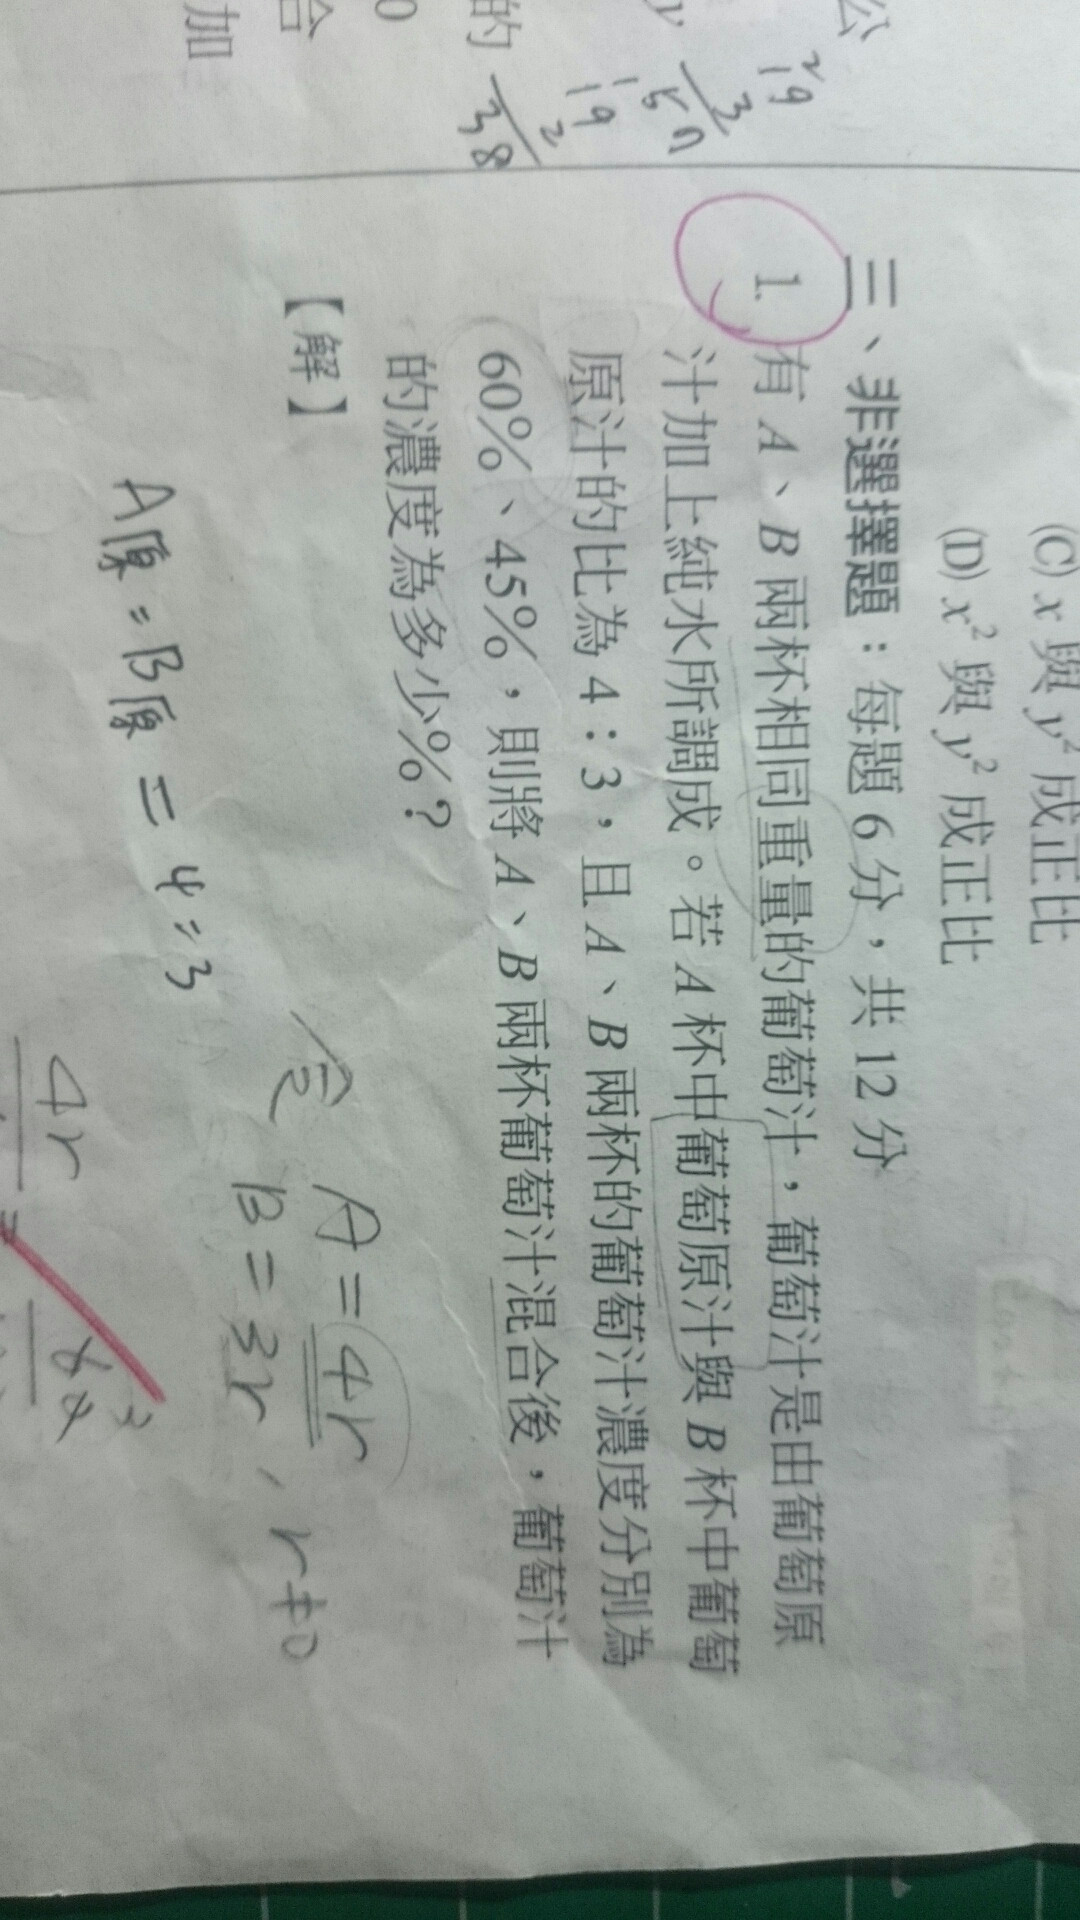 公
y
的
合
加
0
19
3
50
19
2
38
(C) x 與 y² 成正比
(D) x² 與 y² 成正比
三、非選擇題：每題 6 分，共 12 分
1. 有 A、B 兩杯相同重量的葡萄汁，葡萄汁是由葡萄原
汁加上純水所調成。若 A 杯中葡萄原汁與 B 杯中葡萄
原汁的比為 4：3，且 A、B 兩杯的葡萄汁濃度分別為
60%、45%，則將 A、B 兩杯葡萄汁混合後，葡萄汁
的濃度為多少%？
【解】
A = 4r
B = 3r , r≠0
A原:B原 = 4:3
4r